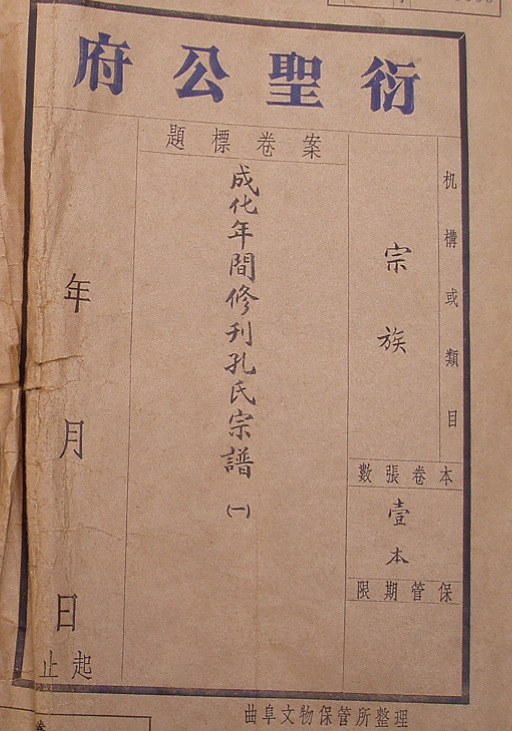 衍聖公府
机構或類目
宗族
本卷張數
壹本
保管期限
案卷標題
成化年間修刊孔氏宗譜(一)
年月日
起止
曲阜文物保管所整理